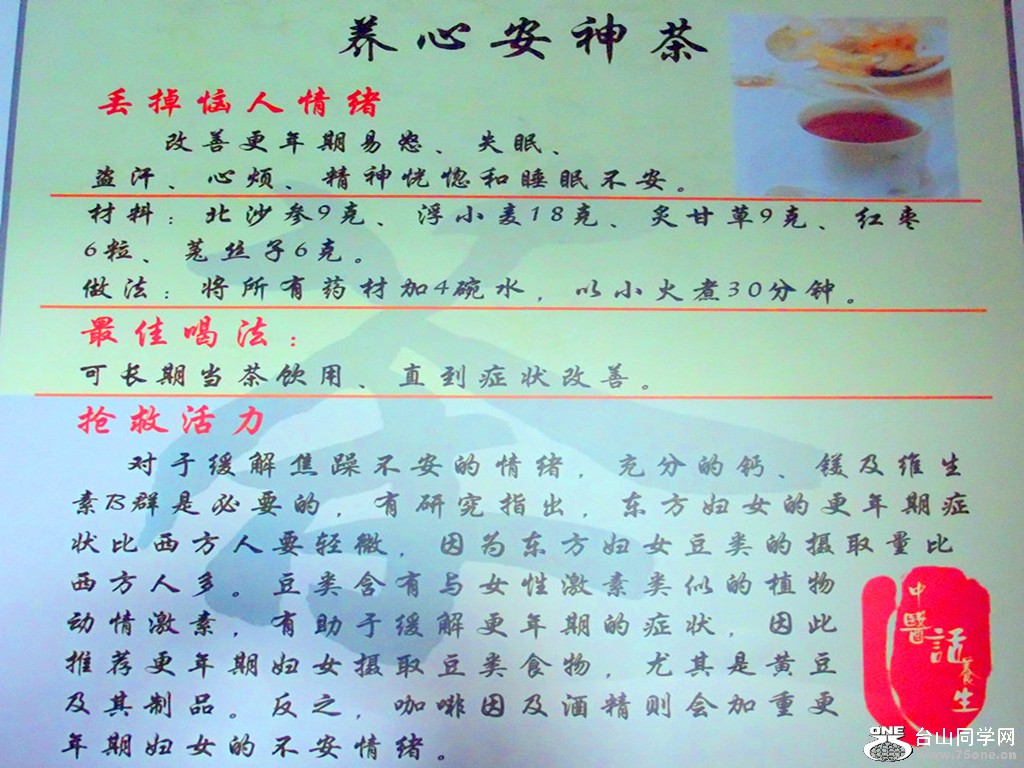 养心安神茶
丢掉恼人情绪
改善更年期易怒、失眠、
盗汗、心烦、精神恍惚和睡眠不安。
材料：北沙参9克、浮小麦18克、炙甘草9克、红枣
6粒、菟丝子6克。
做法：将所有药材加4碗水，以小火煮30分钟。
最佳喝法：
可长期当茶饮用、直到症状改善。
抢救活力
对于缓解焦躁不安的情绪，充分的钙、镁及维生
素B群是必要的，有研究指出，东方妇女的更年期症
状比西方人要轻微，因为东方妇女豆类的摄取量比
西方人多。豆类含有与女性激素类似的植物
动情激素，有助于缓解更年期的症状，因此
推荐更年期妇女摄取豆类食物，尤其是黄豆
及其制品。反之，咖啡因及酒精则会加重更
年期妇女的不安情绪。
中醫話養生
ONE 台山同学网
www.75one.cn